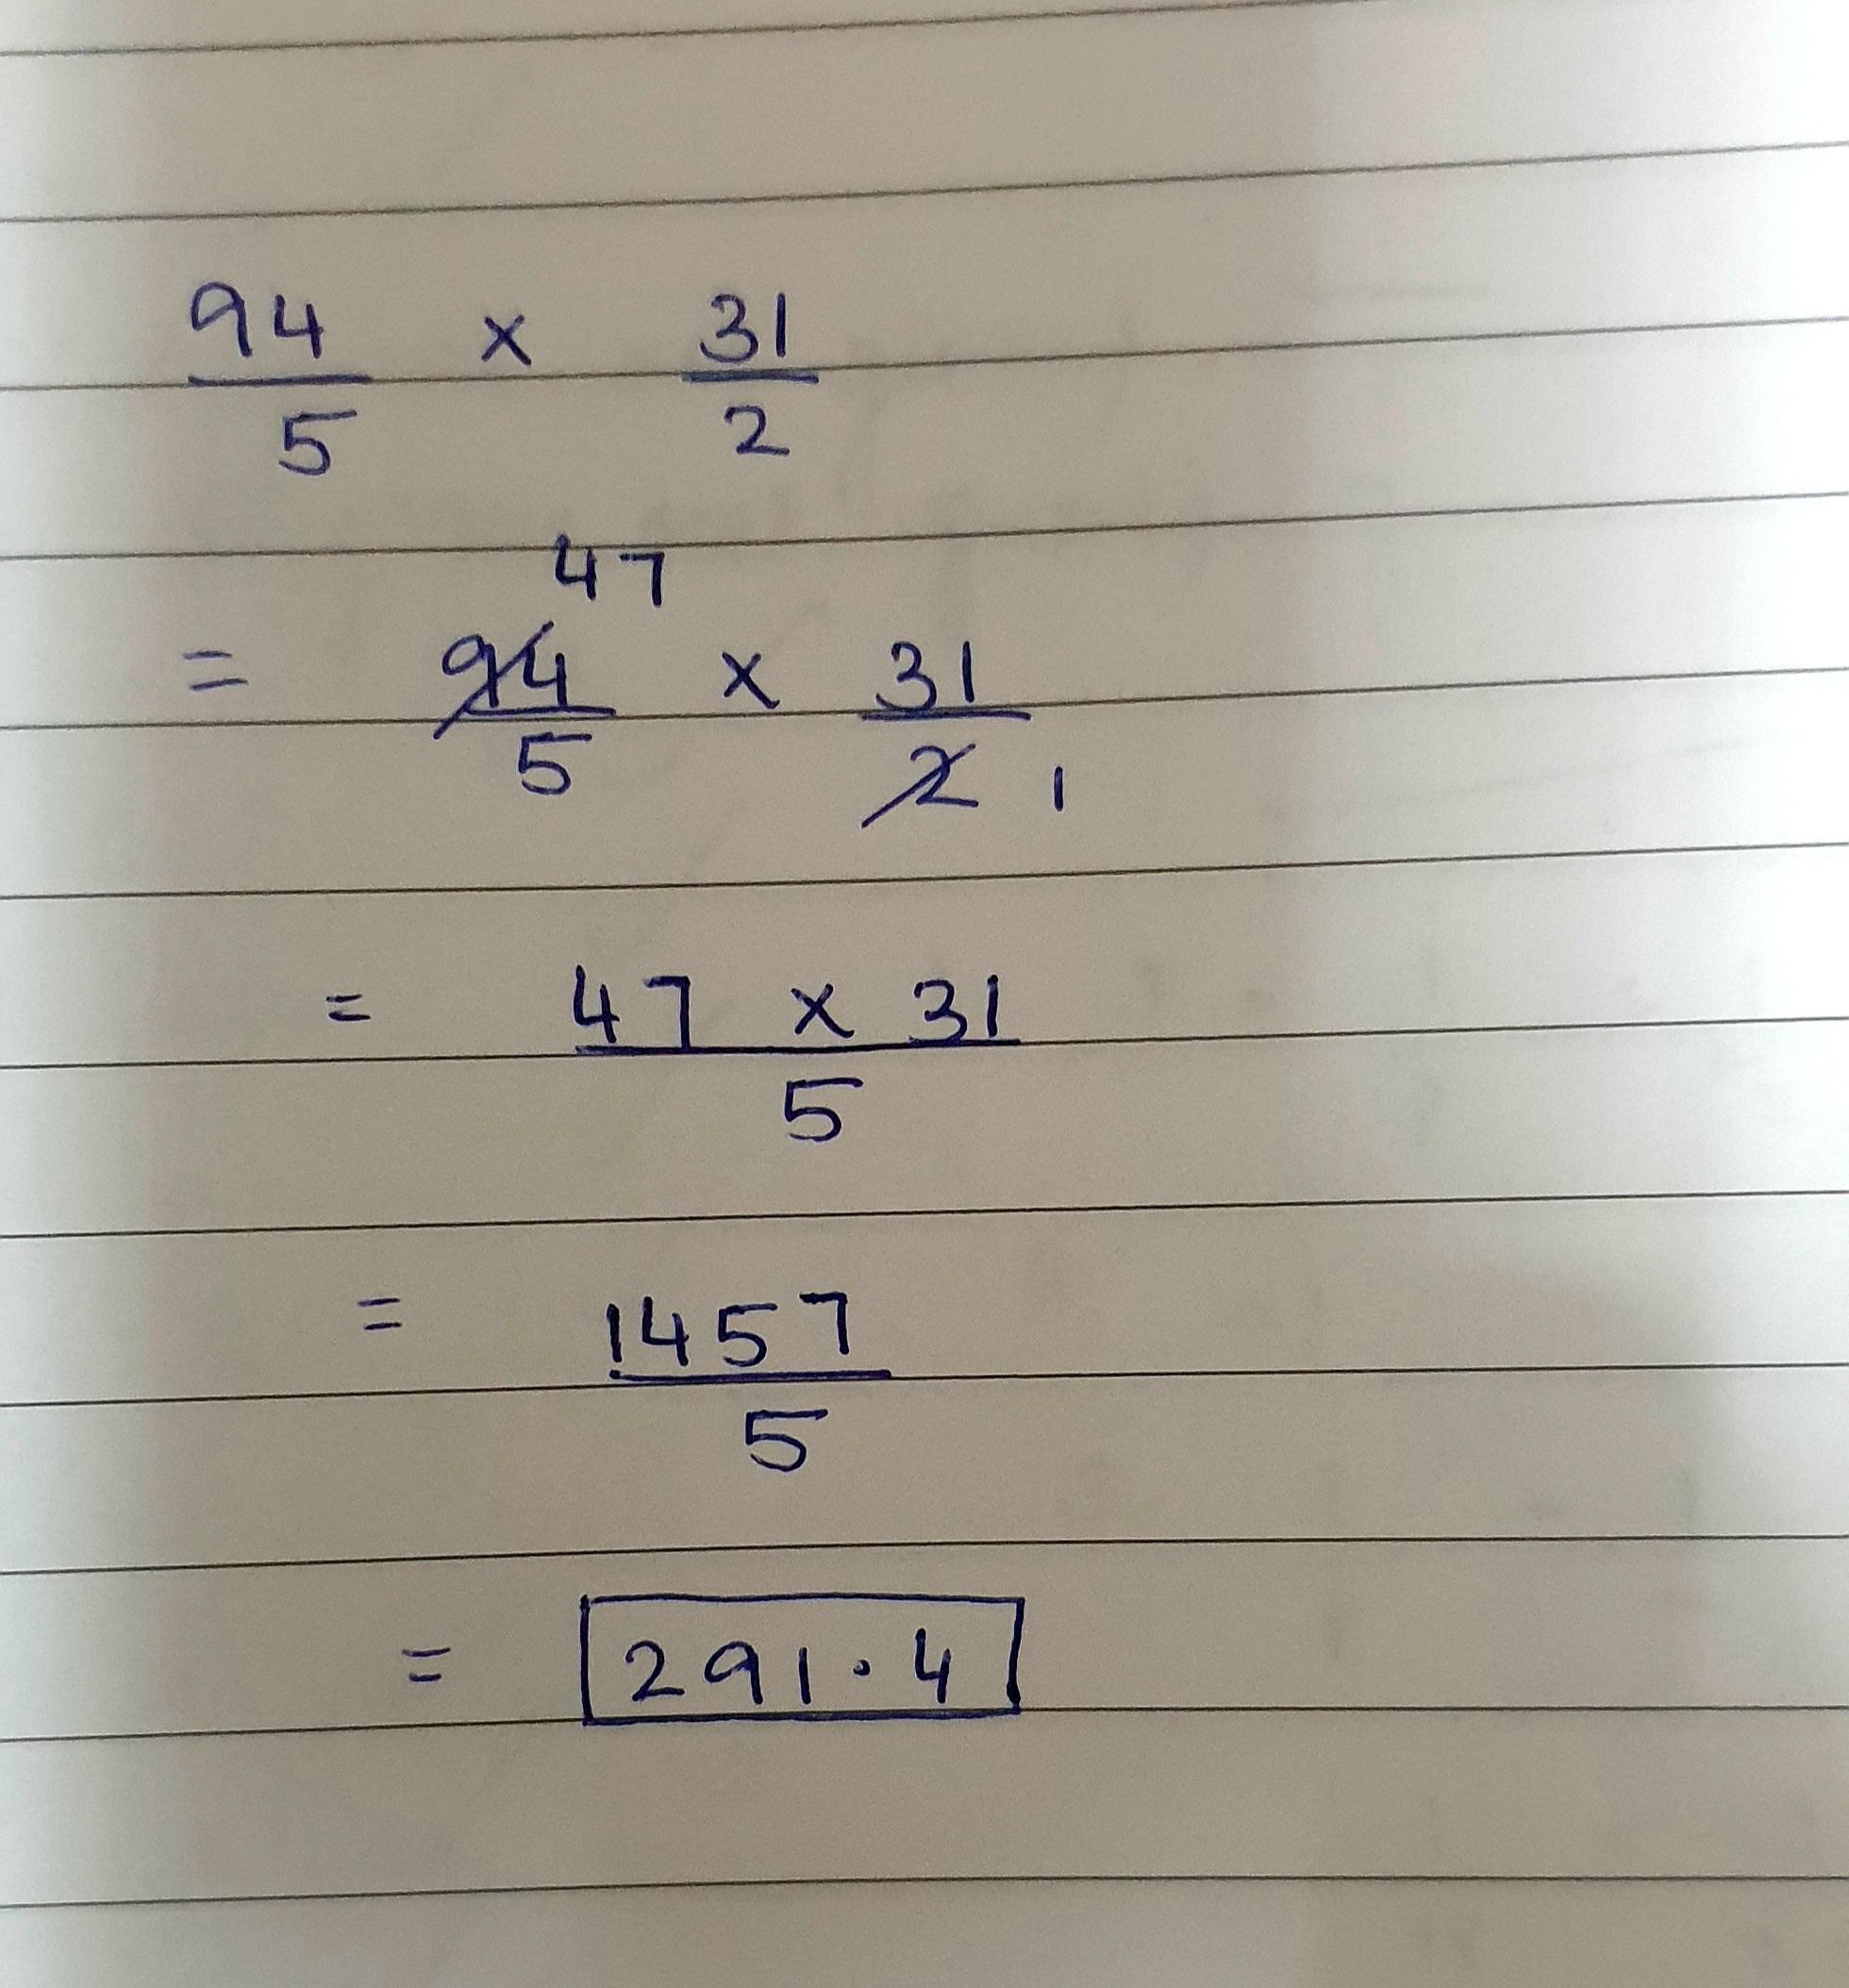 94/5 × 31/2
= 94/5 × 31/2 47 1
= 47 × 31/5
= 1457/5
= 291.4